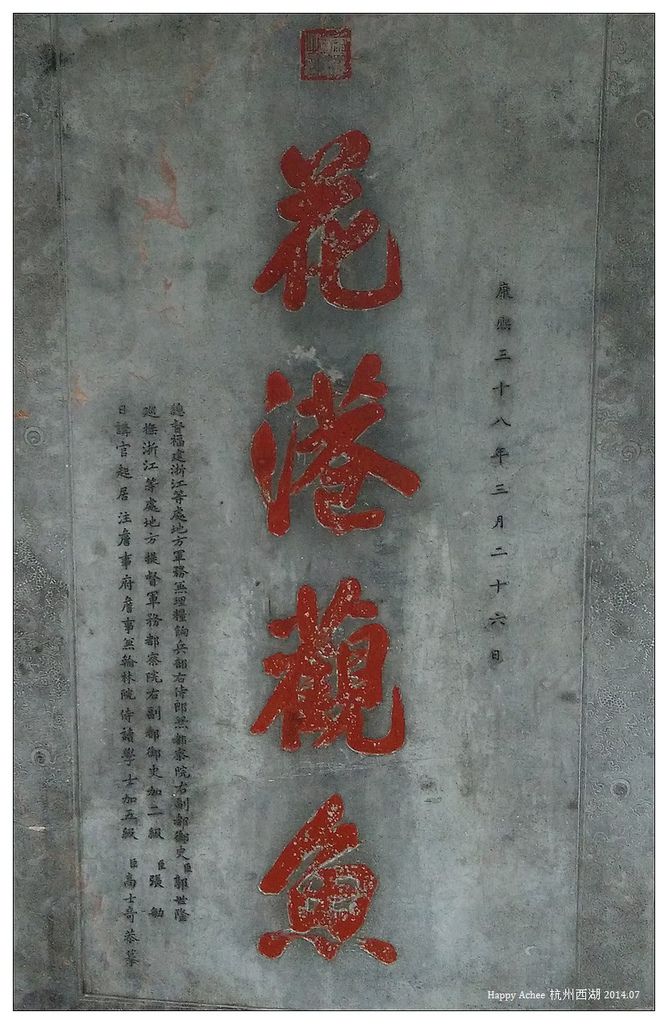 康熙三十八年三月二十六日
花港觀魚
總督福建浙江等處地方軍務兼理糧餉兵部右侍郎兼都察院右副都御史臣郭世隆
巡撫浙江等處地方提督軍務都察院右副都御史加二級臣張敏
日講官起居注詹事府詹事兼翰林院侍讀學士加五級臣高士奇恭摹
Happy Achee 杭州西湖 2014.07